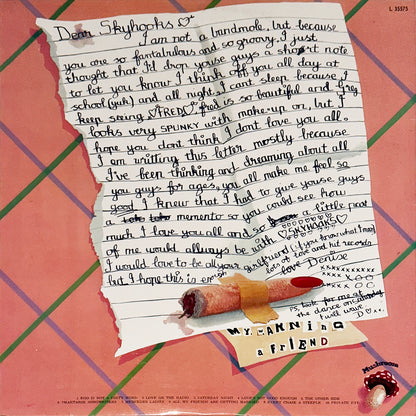 L 35575
Dear Skyhooks
I am not a bandmole, but because
you are so fantabulous and so groovy. I just
thought that I'd drop youse guys a short note
to let you know I think off you all day at
school (yuk) and all night. I cant sleep because I
keep seeing FRED. fred is so beautiful and Greg
looks very SPUNKY with make-up on, but I
hope you dont think I dont love you all.
I am writting this letter mostly because
I've been thinking and dreaming about all
you guys for ages, you all make me feel so
good I knew that I had to give youse guys
a memento so you could see how
much I love you all and so a little part
of me would allways be with SKYHOOKS
I would love to be all your girlfriend (if you know what I mean)
but I hope this is enough lots of love and hit records
love Denise
xxxxxxxxxx
P.S. look for me at
the dance on
I will wave
D
MY MAMMING
a fRiEND
Mushroom
1 EGO IS NOT A DIRTY WORD 2 LOVE ON THE RADIO 3 SATURDAY NIGHT 4 LOVE'S NOT GOOD ENOUGH 5 THE OTHER SIDE
6 SMARTARSE SONGWRITERS 7 MERCEDES LADIES 8 ALL MY FRIENDS ARE GETTING MARRIED 9 EVERY CHASE A STEEPLE 10 PRIVATE EYE